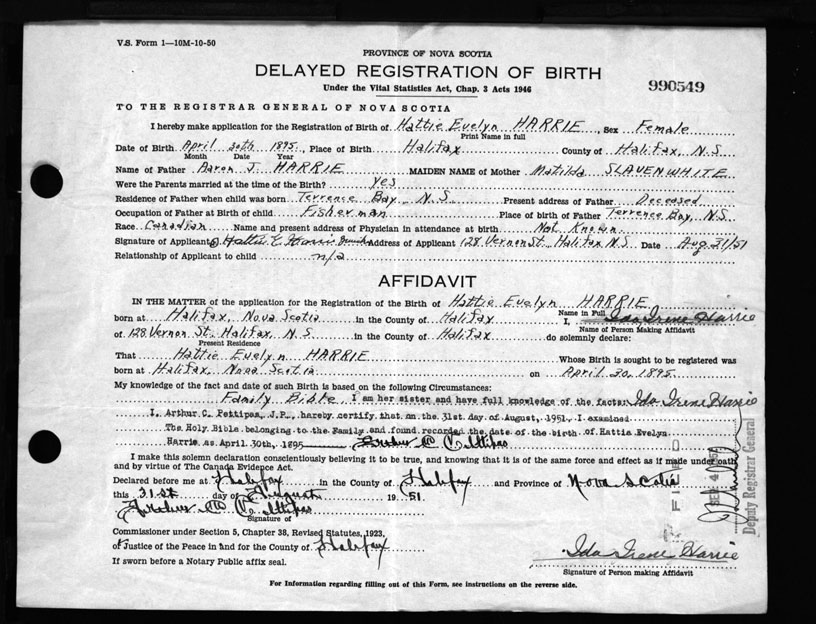 V.S. Form 1—10M-10-50
PROVINCE OF NOVA SCOTIA
DELAYED REGISTRATION OF BIRTH
990549
Under the Vital Statistics Act, Chap. 3 Acts 1946
TO THE REGISTRAR GENERAL OF NOVA SCOTIA
I hereby make application for the Registration of Birth of Hattie Evelyn HARRIE, Sex Female
Print Name in full
Date of Birth April 30th 1895, Place of Birth Halifax County of Halifax, N.S
Month Date Year
Name of Father Aaron J. HARRIE MAIDEN NAME of Mother Matilda SLAVENWHITE
Were the Parents married at the time of the Birth? yes
Residence of Father when child was born Terrence Bay, N.S Present address of Father Deceased
Occupation of Father at Birth of child Fisherman Place of birth of Father Terrence Bay, N.S.
Race Canadian Name and present address of Physician in attendance at birth Not Known
Signature of Applicant Hattie E Harrie Address of Applicant 128 Vernon St. Halifax N.S Date Aug 31/51
Relationship of Applicant to child n/a
AFFIDAVIT
IN THE MATTER of the application for the Registration of the Birth of Hattie Evelyn HARRIE
Name in Full
born at Halifax, Nova Scotia in the County of Halifax I, Ida Irene Harrie
Name of Person Making Affidavit
of 128 Vernon St. Halifax, N.S in the County of Halifax do solemnly declare:
Present Residence
That Hattie Evelyn HARRIE Whose Birth is sought to be registered was
born at Halifax, Nova Scotia on April 30, 1895.
My knowledge of the fact and date of such Birth is based on the following Circumstances:
Family Bible I am her sister and have full knowledge of the facts: Ida Irene Harrie
I, Arthur C. Pettipas, J.P., hereby certify that on the 31st day of August, 1951, I examined
The Holy Bible belonging to the Family and found recorded the date of the birth of Hattie Evelyn
Harrie as April 30th, 1895
I make this solemn declaration conscientiously believing it to be true, and knowing that it is of the same force and effect as if made under oath
and by virtue of The Canada Evidence Act.
Declared before me at Halifax in the County of Halifax and Province of Nova Scotia
this 31st day of August 1951
Signature of
Commissioner under Section 5, Chapter 38, Revised Statutes, 1923,
or Justice of the Peace in and for the County of Halifax
If sworn before a Notary Public affix seal.
Ida Irene Harrie
Signature of Person Making Affidavit
For Information regarding filling out of this Form, see instructions on the reverse side.
FILED
SEP 4 1951
Deputy Registrar General